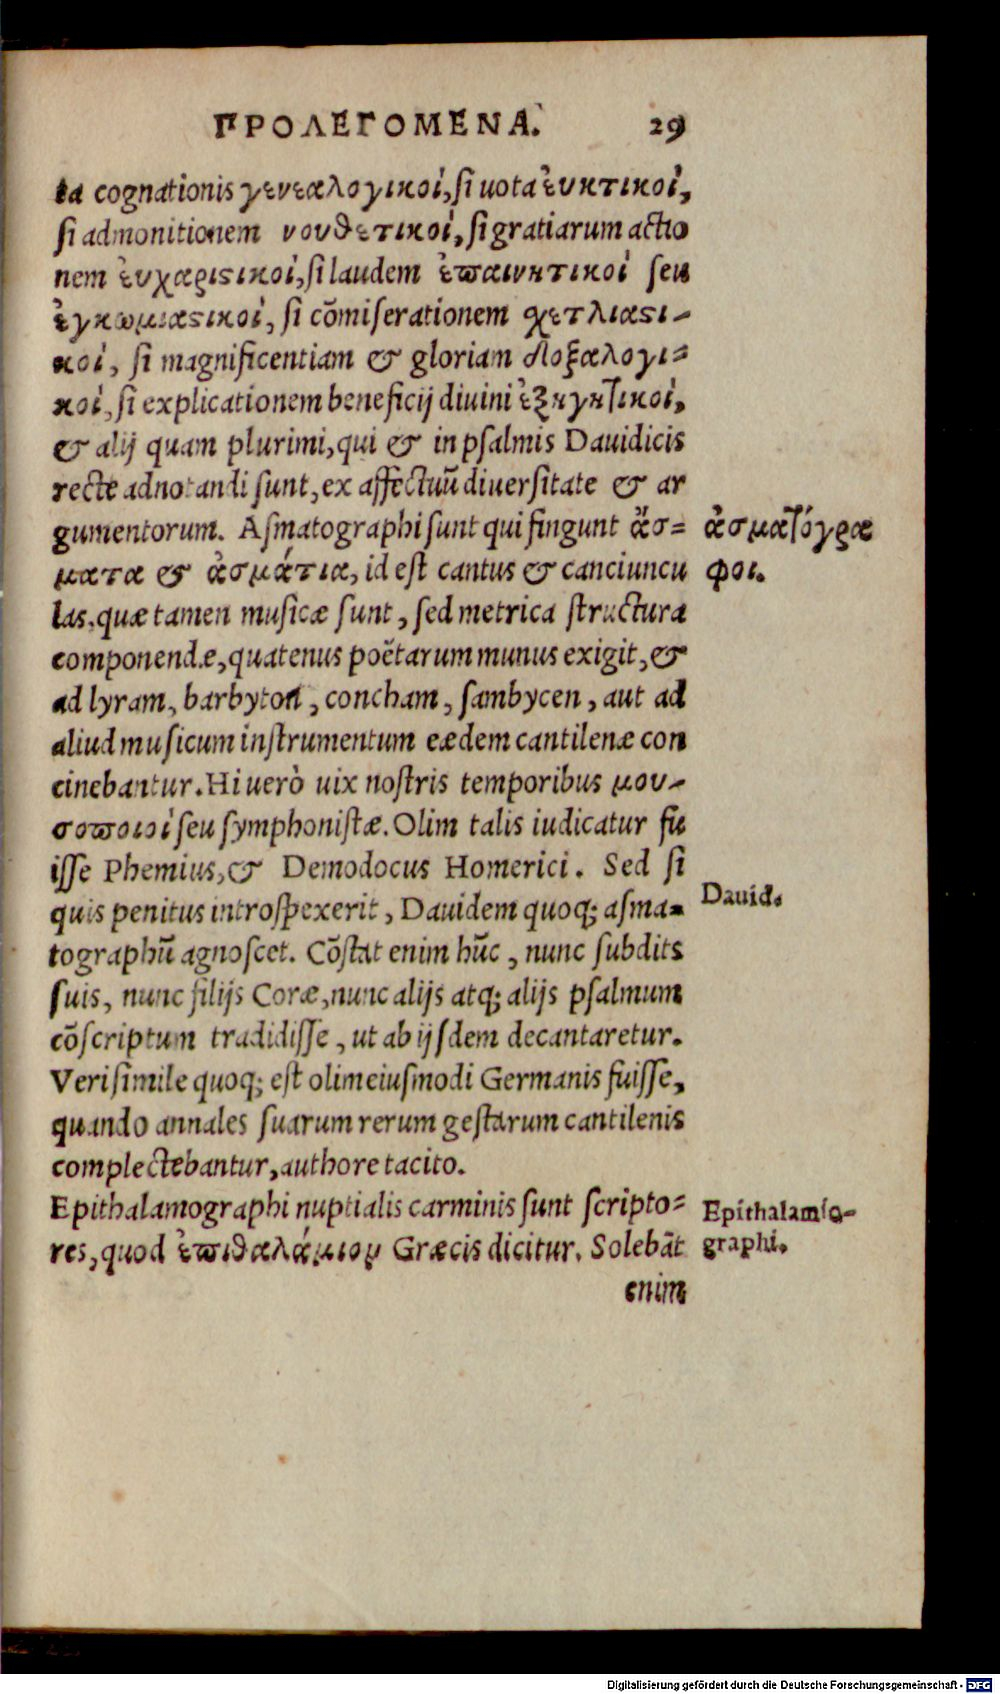 ΠΡΟΛΕΓΟΜΕΝΑ. 29
ta cognationis γενεαλογικοί, si uota ἐυκτικοὶ,
si admonitionem νουθετικοί, si gratiarum actio
nem ἐυχαριστικοί, si laudem ἐπαινητικοί seu
ἐγκωμιαστικοί, si cõmiserationem σχετλιαστι-
κοί, si magnificentiam & gloriam δοξαλογι=
κοί, si explicationem beneficij diuini ἐξηγητικοί,
& alij quam plurimi, qui & in psalmis Dauidicis
recte adnotandi sunt, ex affectuũ diuersitate & ar
gumentorum. Asmatographi sunt qui fingunt ἄσ=
ματα & ἀσμάτια, id est cantus & canciuncu
las, quæ tamen musicæ sunt, sed metrica structura
componendæ, quatenus poëtarum munus exigit, &
ad lyram, barbyton, concham, sambycen, aut ad
aliud musicum instrumentum eædem cantilenæ con
cinebantur. Hi uerò uix nostris temporibus μου-
σοποιοί seu symphonistæ. Olim talis iudicatur fu
isse Phemius, & Demodocus Homerici. Sed si
quis penitus introspexerit, Dauidem quoq; asma-
tographũ agnoscet. Cõstat enim hũc, nunc subdits
suis, nunc filijs Coræ, nunc alijs atq; alijs psalmum
cõscriptum tradidisse, ut ab ijsdem decantaretur.
Verisimile quoq; est olim eiusmodi Germanis fuisse,
quando annales suarum rerum gestarum cantilenis
complectebantur, authore tacito.
Epithalamographi nuptialis carminis sunt scripto=
res, quod ἐπιθαλάμιον Græcis dicitur. Solebãt
enim
ἀσματόγρα
φοι.
Dauid.
Epithalamio-
graphi.
Digitalisierung gefördert durch die Deutsche Forschungsgemeinschaft - DFG